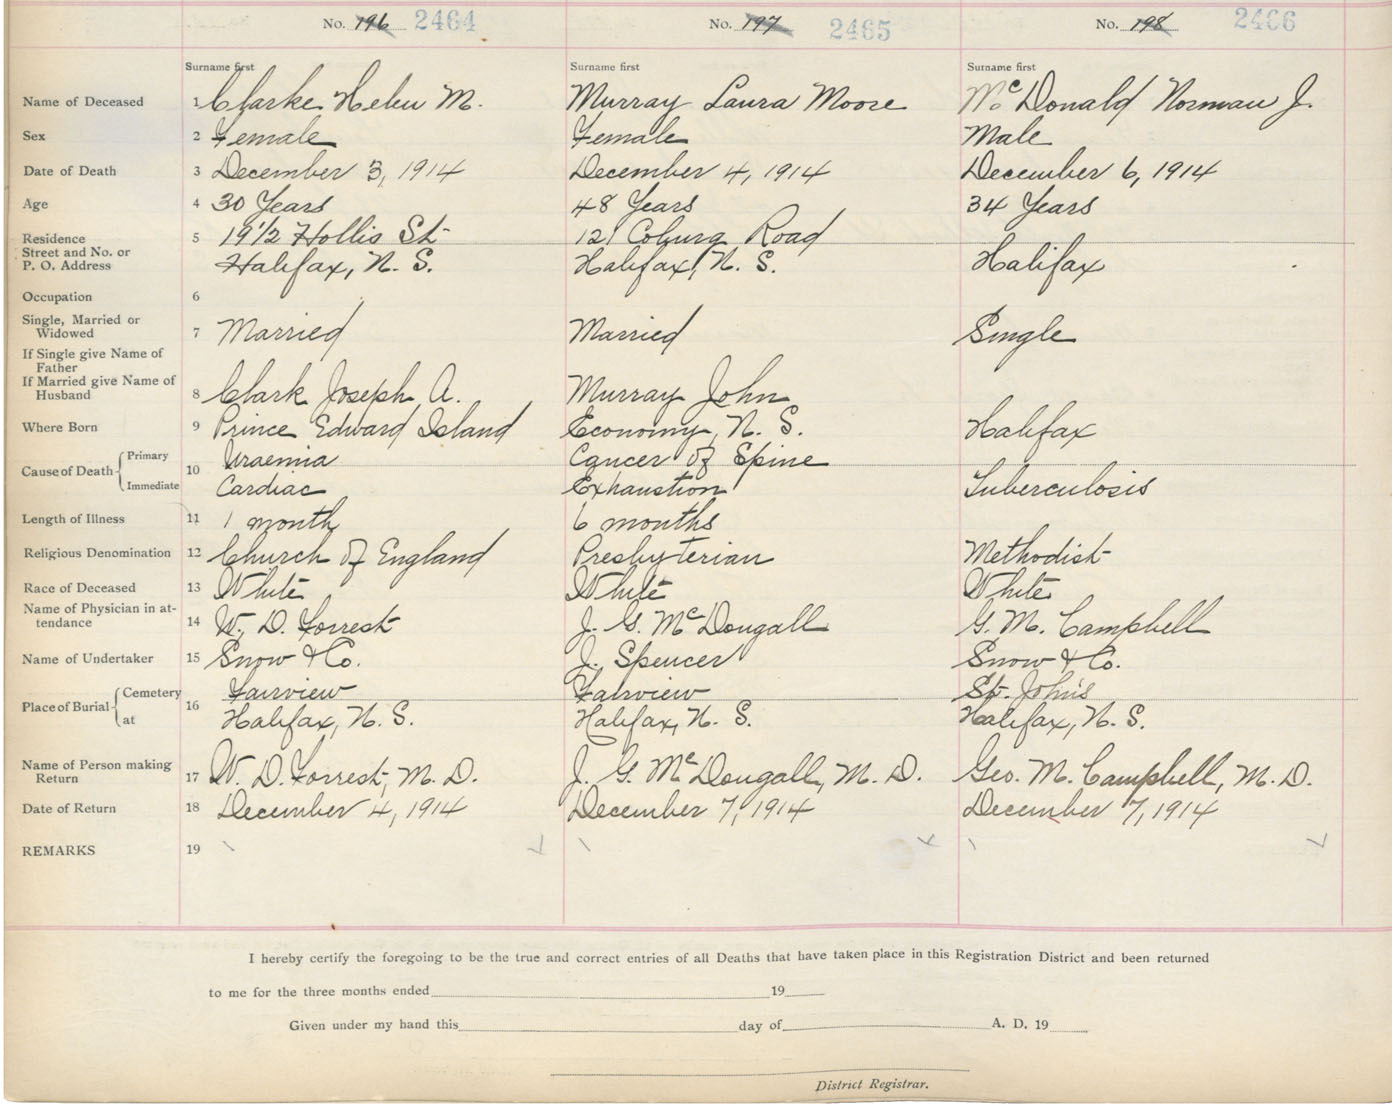 No. 196 2464 No. 197 2465 No. 198 2466
Surname first Surname first Surname first
Name of Deceased 1 Clarke Helen M. Murray Laura Moore McDonald Norman J.
Sex 2 Female Female Male
Date of Death 3 December 3, 1914 December 4, 1914 December 6, 1914
Age 4 30 Years 48 Years 34 Years
Residence 5 19 1/2 Hollis St 121 Coburg Road
Street and No. or
P. O. Address Halifax, N. S. Halifax, N. S. Halifax
Occupation 6
Single, Married or
Widowed 7 Married Married Single
If Single give Name of
Father
If Married give Name of
Husband 8 Clark Joseph A. Murray John
Where Born 9 Prince Edward Island Economy, N. S. Halifax
Cause of Death 10 Primary Uraemia Cancer of Spine
Immediate Cardiac Exhaustion Tuberculosis
Length of Illness 11 1 month 6 months
Religious Denomination 12 Church of England Presbyterian Methodist
Race of Deceased 13 White White White
Name of Physician in at-
tendance 14 W. D. Forrest J. G. McDougall G. M. Campbell
Name of Undertaker 15 Snow & Co. J. Spencer Snow & Co.
Place of Burial 16 Cemetery Fairview Fairview St. John's
at Halifax, N. S. Halifax, N. S. Halifax, N. S.
Name of Person making
Return 17 W. D. Forrest, M. D. J. G. McDougall, M. D. Geo. M. Campbell, M. D.
Date of Return 18 December 4, 1914 December 7, 1914 December 7, 1914
REMARKS 19
I hereby certify the foregoing to be the true and correct entries of all Deaths that have taken place in this Registration District and been returned
to me for the three months ended 19
Given under my hand this day of A. D. 19
District Registrar.